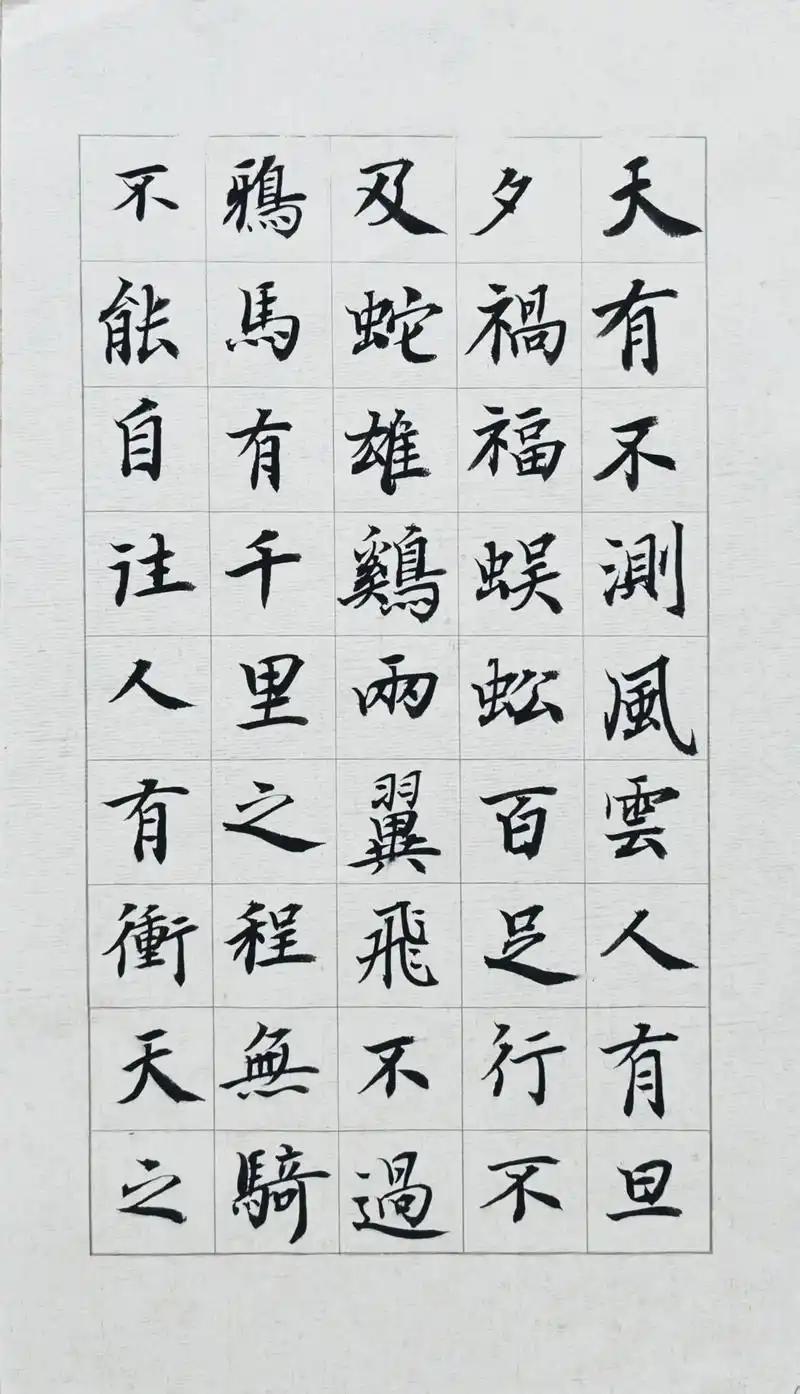 天有不測風雲人有旦
夕禍福蜈蚣百足行不
及蛇雄鷄兩翼飛不過
鴉馬有千里之程無騎
不能自往人有衝天之